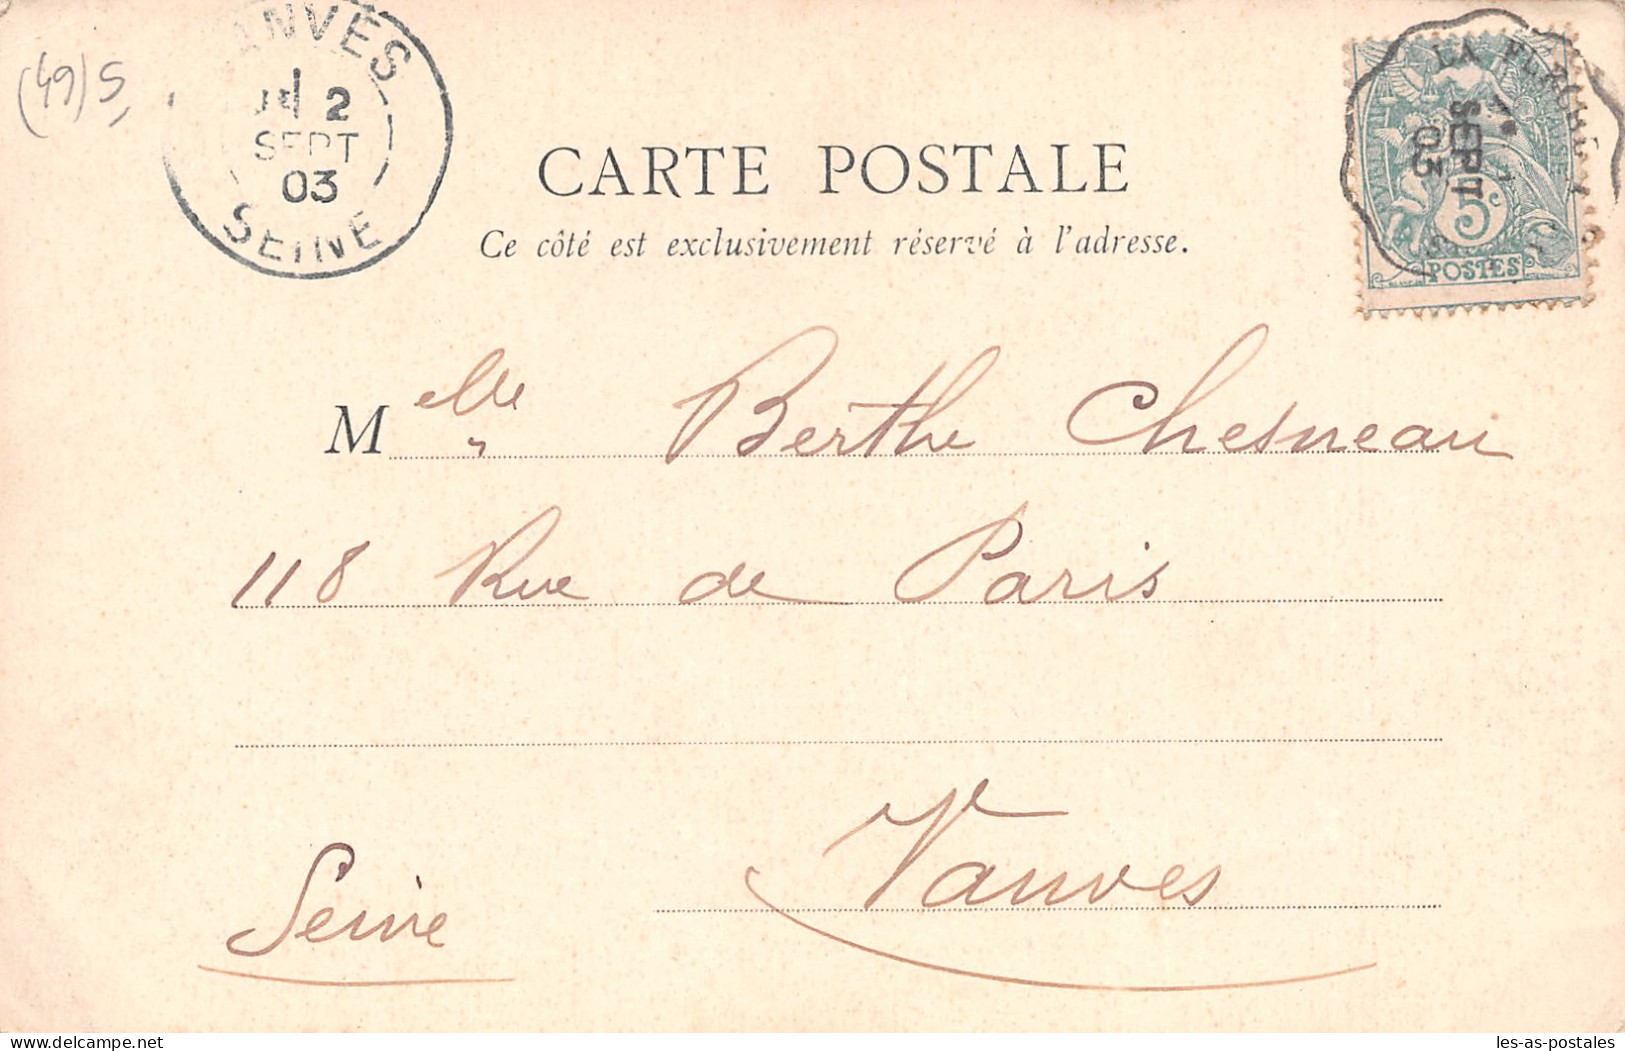 (49) S
VANVES
2
SEPT
03
SEINE
LA FLÈCHE
SEPT
03
5c
POSTES
CARTE POSTALE
Ce côté est exclusivement réservé à l'adresse.
Melle Berthe Chesneau
118 Rue de Paris
Vanves
Seine
les-as-postales